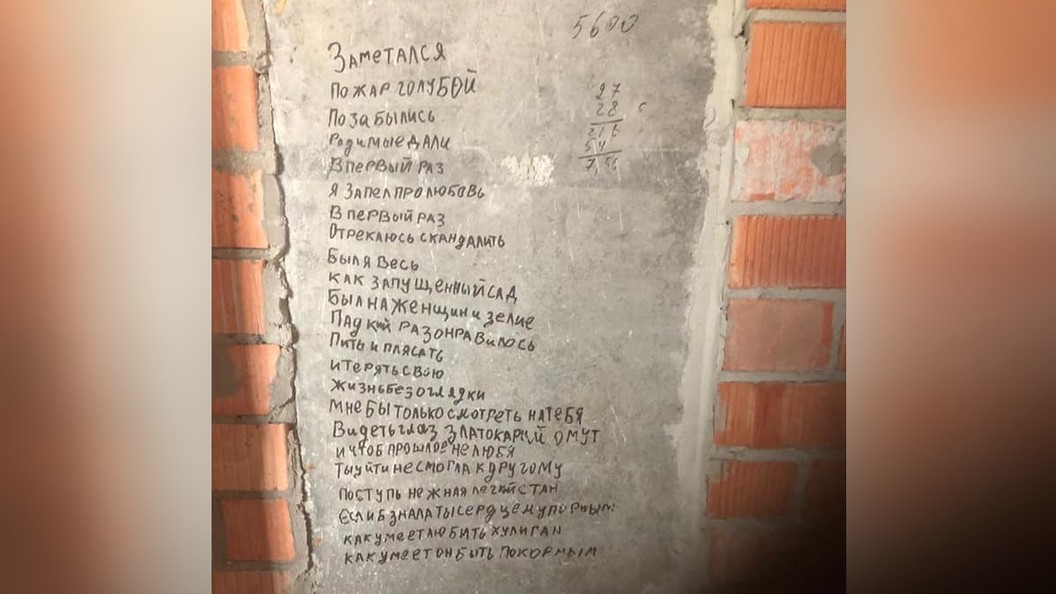 5600
Заметался
пожар голубой
27
28
216
54
756
Позабылись
Родимые дали
В первый раз
я запел про любовь
В первый раз
Отрекаюсь скандалить
Был я весь
как запущенный сад
Был на женщин и зелие
Падкий разонравилось
Пить и плясать
и терять свою
жизнь без оглядки
мне бы только смотреть на тебя
Видеть глаз златокарий омут
и чтоб прошлое не любя
ты уйти не смогла к другому
поступь нежная легкий стан
Если б знала ты сердцем упорным
как умеет любить хулиган
как умеет он быть покорным